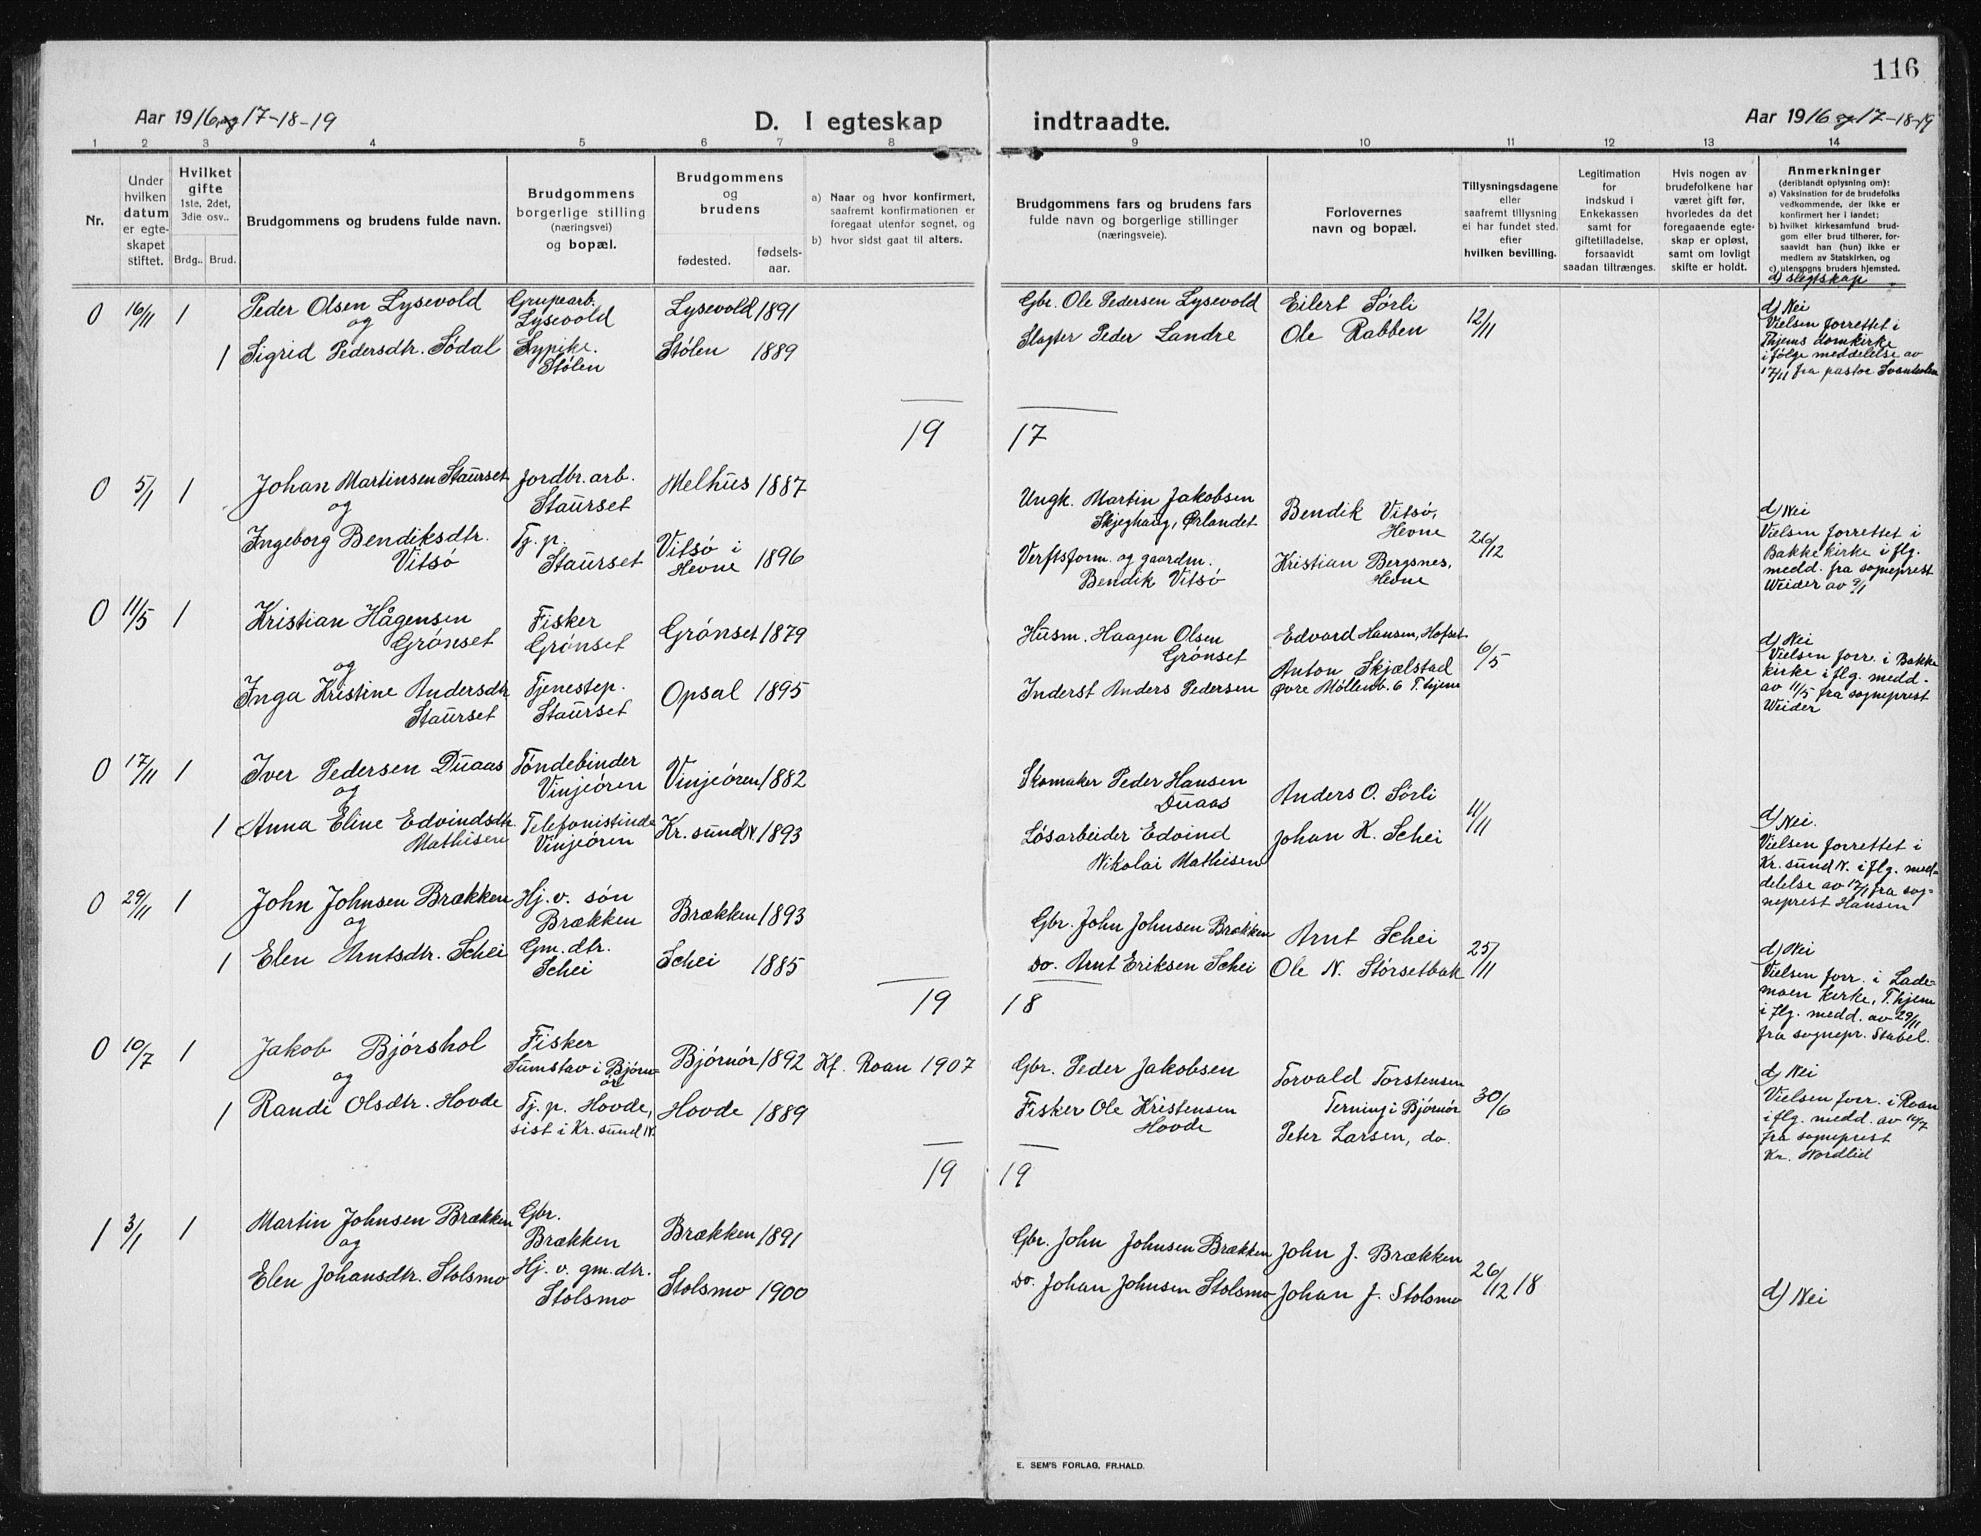 116
Aar 1916 og 17-18-19
D. I egteskap indtraadte.
Aar 1916 og 17-18-19
1 2 3 4 5 6 7 8 9 10 11 12 13 14
Nr.
Under hvilken datum er egteskapet stiftet.
Hvilket gifte 1ste, 2det, 3die osv..
Brdg.. Brud.
Brudgommens og brudens fulde navn.
Brudgommens borgerlige stilling (næringsvei) og bopæl.
Brudgommens og brudens
fødested. fødselsaar.
a) Naar og hvor konfirmert, saafremt konfirmationen er foregaat utenfor sognet, og
b) hvor sidst gaat til alters.
Brudgommens fars og brudens fars fulde navn og borgerlige stillinger (næringsveie).
Forlovernes navn og bopæl.
Tillysningsdagene eller saafremt tillysning ei har fundet sted, efter hvilken bevilling.
Legitimation for indskud i Enkekassen samt for giftetilladelse, forsaavidt saadan tiltrænges.
Hvis nogen av brudefolkene har været gift før, hvorledes da det foregaaende egteskap er opløst, samt om lovligt skifte er holdt.
Anmerkninger (deriblandt oplysning om):
a) Vaksination for de brudefolks vedkommende, der ikke er konfirmert her i landet;
b) hvilket kirkesamfund brudgom eller brud tilhører, forsaavidt han (hun) ikke er medlem av Statskirken, og
c) utensogns bruders hjemsted.
d) slegtskap.
0 16/11 1 Peder Olsen Lysevold Grupearb. Lysevold Lysevold 1891
og
1 Sigrid Pedersdtr. Södal Sypike. Stölen Stölen 1889
Gbr. Ole Pedersen Lysevold Eilert Sörli 12/11
Slagter Peder Landre Ole Rabben
d) Nei
Vielsen forrettet i
Thjems domkirke
i følge meddelelse av
17/11 fra pastor
19 17
0 5/1 1 Johan Martinsen Staurset Jordbr. arb. Staurset Melhus 1887
og
Ingeborg Bendiksdtr. Vitsö Tj. p. Staurset Vitsö i Hevne 1896
Ungk. Martin Jakobsen Skjeghaug, Ørlandet Bendik Vitsö, Hevne 26/12
Verftsform. og gaardm. Bendik Vitsö Kristian Bergsnes, Hevne
d) Nei
Vielsen forrettet i
Bakke kirke i flg.
medd. fra sogneprest
Weider av 9/1
0 11/5 1 Kristian Hågensen Grönset Fisker Grönset Grönset 1879
og
Inga Kristine Andersdtr Staurset Tjenestep. Staurset Opsal 1895
Husm. Haagen Olsen Grönset Edvard Hansen, Hofset 6/5
Inderst Anders Pedersen Anton Skjælstad Øvre Möllenb. 6 T.hjem
d) Nei
Vielsen forr. i Bakke
kirke i flg. medd.
av 11/5 fra sogneprest
Weider
0 17/11 1 Iver Pedersen Duaas Töndebinder Vinjeören Vinjeören 1882
og
1 Anna Eline Edvindsdtr. Mathisen Telefonistinde Vinjeören Kr. sund N. 1893
Skomaker Peder Hansen Duaas Anders O. Sörli 11/11
Løsarbeider Edvind Nikolai Mathisen Johan K. Schei
d) Nei.
Vielsen forrettet i
Kr. sund N. i flg. meddelelse
av 17/11 fra sogneprest
Hansen
0 29/11 1 John Johnsen Brækken Hj. v. sön Brækken Brækken 1893
og
1 Elen Arntsdtr. Schei Gm. dtr. Schei Schei 1885
Gbr. John Johnsen Brækken Arnt Schei 25/11
Do. Arnt Eriksen Schei Ole N. Störsetbak
d) Nei
Vielsen forr. i Lademoen
Kirke, T.hjem
i flg. medd. av 29/11
fra sognepr. Stabel.
19 18
0 10/7 1 Jakob Bjórshol Fisker Sumstav i Bjørnør Bjørnør 1892 Kf. Roan 1907
og
1 Randi Olsdtr. Hovde Tj. p. Hovde, sist i Kr. sund N. Hovde 1889
Gbr. Peder Jakobsen Torvald Torstensen Terning i Bjørnør 30/6
Fisker Ole Kristensen Hovde Peter Larsen, do.
d) Nei
Vielsen forr. i Roan
i flg. medd. av 10/7
fra sogneprest
Kr. Nordlid
19 19
1 3/1 1 Martin Johnsen Brækken Gbr. Brækken Brækken 1891
og
Elen Johansdtr. Stolsmo Hj. v. gm. dtr. Stolsmo Stolsmo 1900
Gbr. John Johnsen Brækken John J. Brækken 26/12 18
Do. Johan Johnsen Stolsmo Johan J. Stolsmo
d) Nei
E. SEM'S FORLAG, FR.HALD.